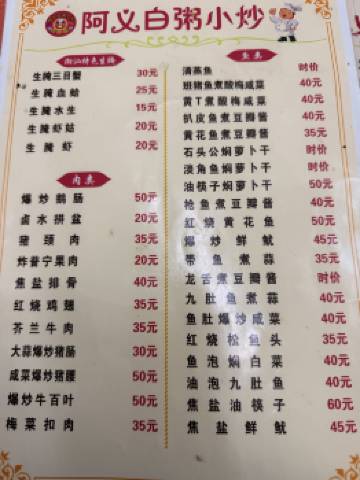 阿义白粥小炒
潮汕特色生腌
生腌三目蟹 30元
生腌血蛤 25元
生腌水生 15元
生腌虾姑 20元
生腌虾 20元
肉类
爆炒鹅肠 50元
卤水拼盆 20元
猪颈肉 35元
炸普宁果肉 20元
焦盐排骨 40元
红烧鸡翅 35元
芥兰牛肉 35元
大蒜爆炒猪肠 30元
咸菜爆炒猪腰 50元
爆炒牛百叶 50元
梅菜扣肉 35元
鱼类
清蒸鱼 时价
斑猪鱼煮酸梅咸菜 40元
黄T煮酸梅咸菜 40元
扒皮鱼煮豆瓣酱 35元
黄花鱼煮豆瓣酱 35元
石头公焖萝卜干 时价
淡角鱼焖萝卜干 时价
油筷子焖萝卜干 50元
枪鱼煮豆瓣酱 40元
红烧黄花鱼 50元
爆炒鲜鱿 45元
带鱼煮蒜 35元
龙舌煮豆瓣酱 时价
九肚鱼煮蒜 40元
鱼肚爆炒咸菜 40元
红烧松鱼头 35元
鱼泡焖白菜 40元
油泡九肚鱼 40元
焦盐油筷子 60元
焦盐鲜鱿 45元